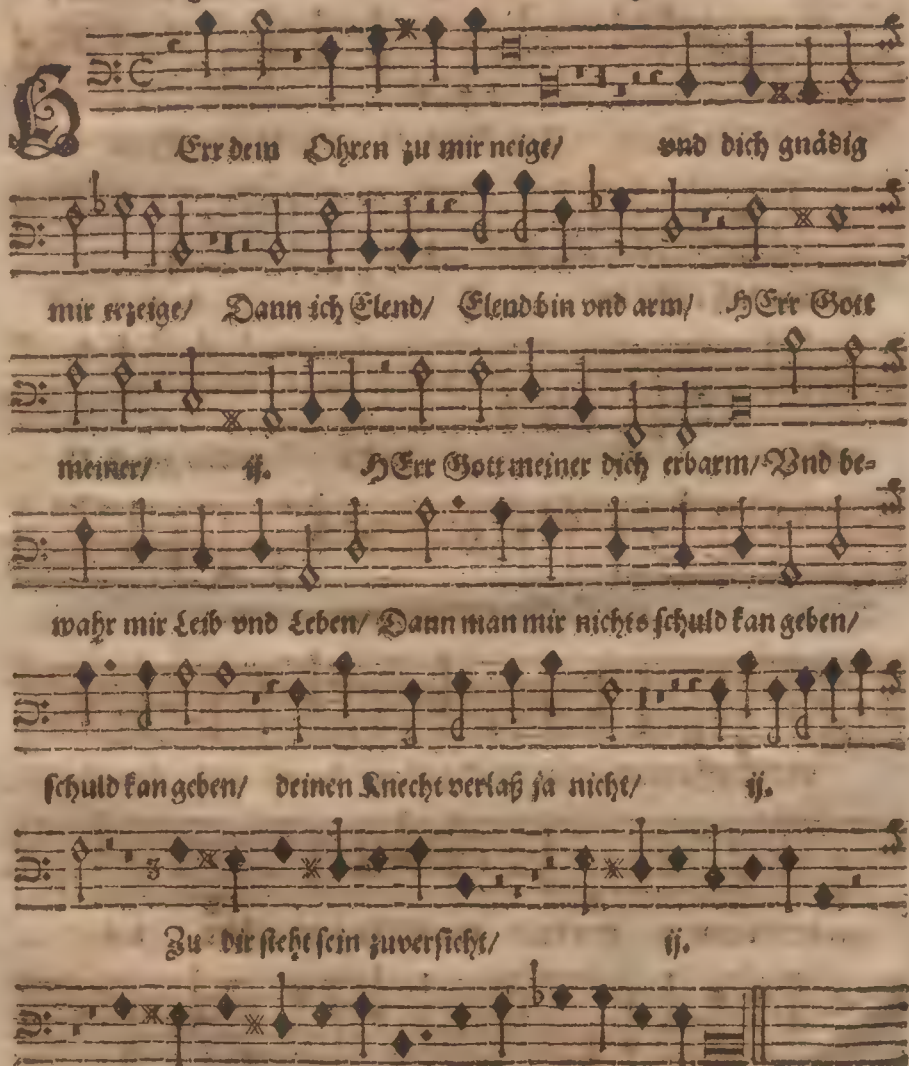 HErr dein Ohren zu mir neige/ vnd dich gnädig
mir erzeige/ Dann ich Elend/ Elend bin vnd arm/ HErr Gott
meiner/ ij. HErr Gott meiner dich erbarm/ Vnd be-
wahr mir Leib vnd Leben/ Dann man mir nichts schuld kan geben/
schuld kan geben/ deinen Knecht verlaß ja nicht/ ij.
Zu dir steht sein zuversicht/ ij.